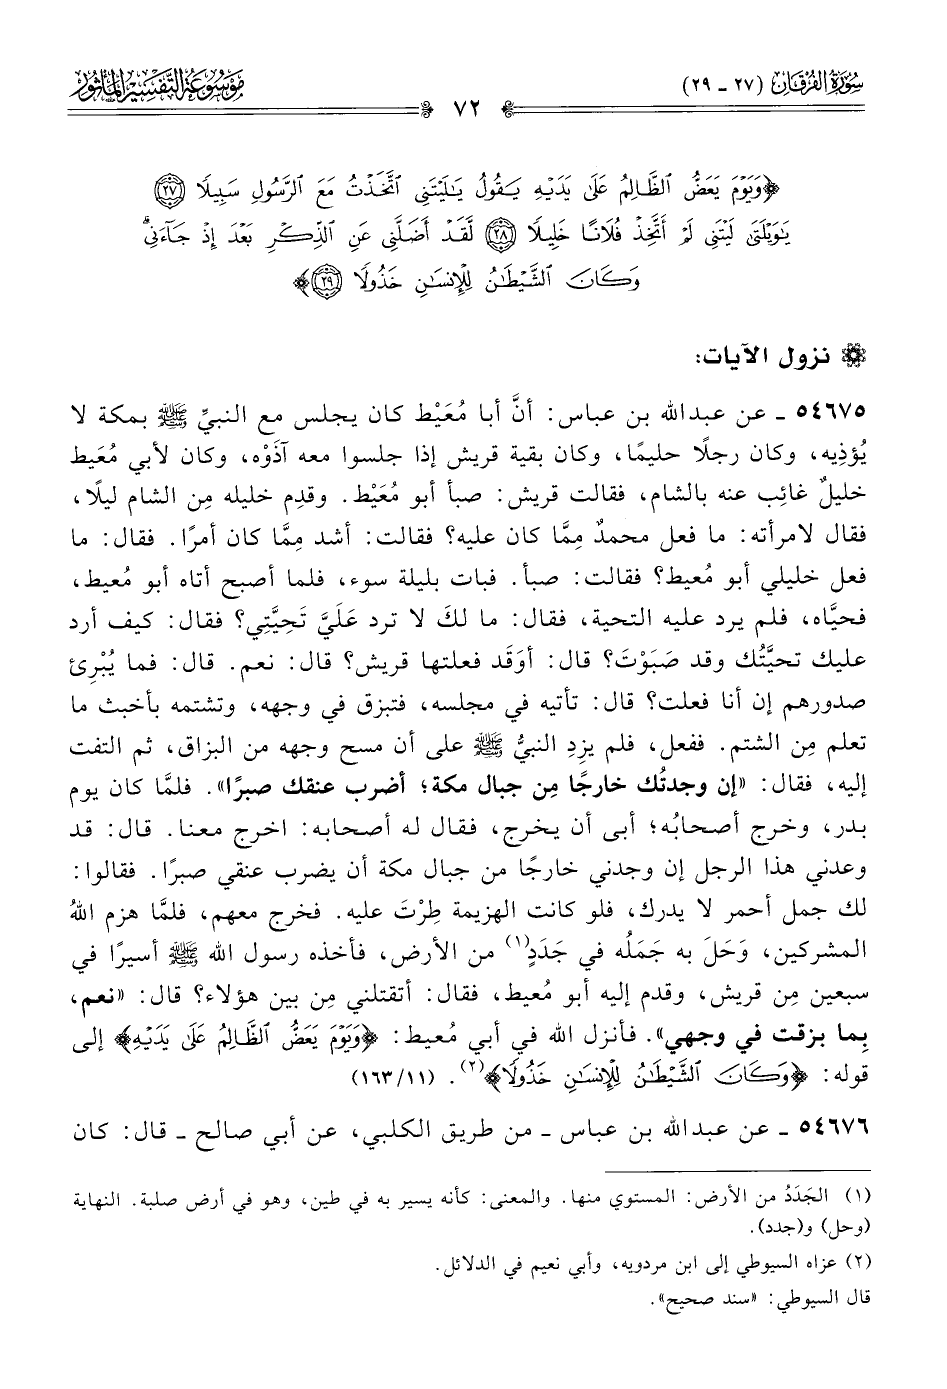 سُورَةُ الفُرْقَان (٢٧ - ٢٩)
٧٢
مَوْسُوعَةُ التَّفْسِيرِ المَأْثُور
﴿وَيَوْمَ يَعَضُّ ٱلظَّالِمُ عَلَىٰ يَدَيْهِ يَقُولُ يَـٰلَيْتَنِى ٱتَّخَذْتُ مَعَ ٱلرَّسُولِ سَبِيلًا ٢٧
يَـٰوَيْلَتَىٰ لَيْتَنِى لَمْ أَتَّخِذْ فُلَانًا خَلِيلًا ٢٨ لَّقَدْ أَضَلَّنِى عَنِ ٱلذِّكْرِ بَعْدَ إِذْ جَآءَنِىۗ
وَكَانَ ٱلشَّيْطَـٰنُ لِلْإِنسَـٰنِ خَذُولًا ٢٩﴾
نزول الآيات:
٥٤٦٧٥ ـ عن عبدالله بن عباس: أنَّ أبا مُعَيْط كان يجلس مع النبيِّ ﷺ بمكة لا
يُؤذِيه، وكان رجلًا حليمًا، وكان بقية قريش إذا جلسوا معه آذَوْه، وكان لأبي مُعَيط
خليلٌ غائِب عنه بالشام، فقالت قريش: صبأ أبو مُعَيْط. وقدِم خليله مِن الشام ليلًا،
فقال لامرأته: ما فعل محمدٌ مِمَّا كان عليه؟ فقالت: أشد مِمَّا كان أمرًا. فقال: ما
فعل خليلي أبو مُعيط؟ فقالت: صبأ. فبات بليلة سوء، فلما أصبح أتاه أبو مُعيط،
فحيَّاه، فلم يرد عليه التحية، فقال: ما لكَ لا ترد عَلَيَّ تَحِيَّتِي؟ فقال: كيف أرد
عليك تحيَّتُك وقد صَبَوْتَ؟ قال: أوَقَد فعلتها قريش؟ قال: نعم. قال: فما يُبْرِئ
صدورهم إن أنا فعلت؟ قال: تأتيه في مجلسه، فتبزق في وجهه، وتشتمه بأخبث ما
تعلم مِن الشتم. ففعل، فلم يزِدِ النبيُّ ﷺ على أن مسح وجهه من البزاق، ثم التفت
إليه، فقال: «إن وجدتُك خارجًا مِن جبال مكة؛ أضرب عنقك صبرًا». فلمَّا كان يوم
بدر، وخرج أصحابُه؛ أبى أن يخرج، فقال له أصحابه: اخرج معنا. قال: قد
وعدني هذا الرجل إن وجدني خارجًا من جبال مكة أن يضرب عنقي صبرًا. فقالوا:
لك جمل أحمر لا يدرك، فلو كانت الهزيمة طِرْتَ عليه. فخرج معهم، فلمَّا هزم اللهُ
المشركين، وَحَلَ به جَمَلُه في جَدَدٍ(١) من الأرض، فأخذه رسول الله ﷺ أسيرًا في
سبعين مِن قريش، وقدم إليه أبو مُعيط، فقال: أتقتلني مِن بين هؤلاء؟ قال: «نعم،
بِما بزقت في وجهي». فأنزل الله في أبي مُعيط: ﴿وَيَوْمَ يَعَضُّ ٱلظَّالِمُ عَلَىٰ يَدَيْهِ﴾ إلى
قوله: ﴿وَكَانَ ٱلشَّيْطَـٰنُ لِلْإِنسَـٰنِ خَذُولًا﴾(٢). (١٦٣/١١)
٥٤٦٧٦ ـ عن عبدالله بن عباس ـ من طريق الكلبي، عن أبي صالح ـ قال: كان
(١) الجَدَدُ من الأرض: المستوي منها. والمعنى: كأنه يسير به في طين، وهو في أرض صلبة. النهاية
(وحل) و(جدد).
(٢) عزاه السيوطي إلى ابن مردويه، وأبي نعيم في الدلائل.
قال السيوطي: «سند صحيح».